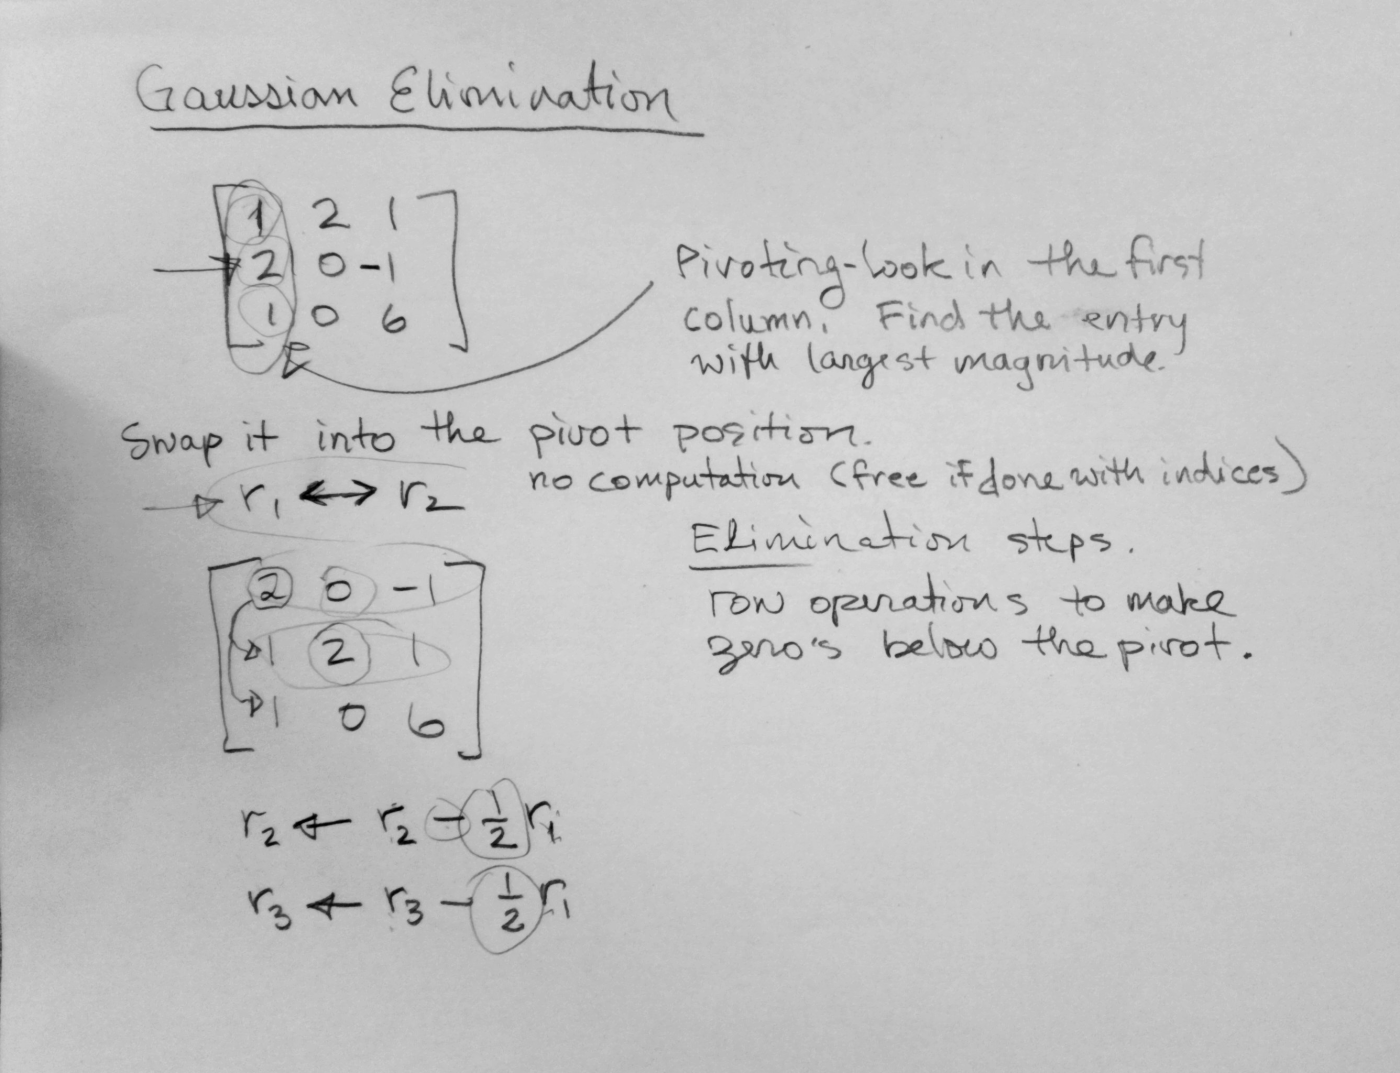 Gaussian Elimination
1 2 1
2 0 -1
1 0 6
Pivoting-look in the first
column. Find the entry
with largest magnitude.
Swap it into the pivot position.
r1 ↔ r2 no computation (free if done with indices)
Elimination steps.
row operations to make
zero's below the pivot.
2 0 -1
1 2 1
1 0 6
r2 ← r2 - 1/2 r1
r3 ← r3 - 1/2 r1